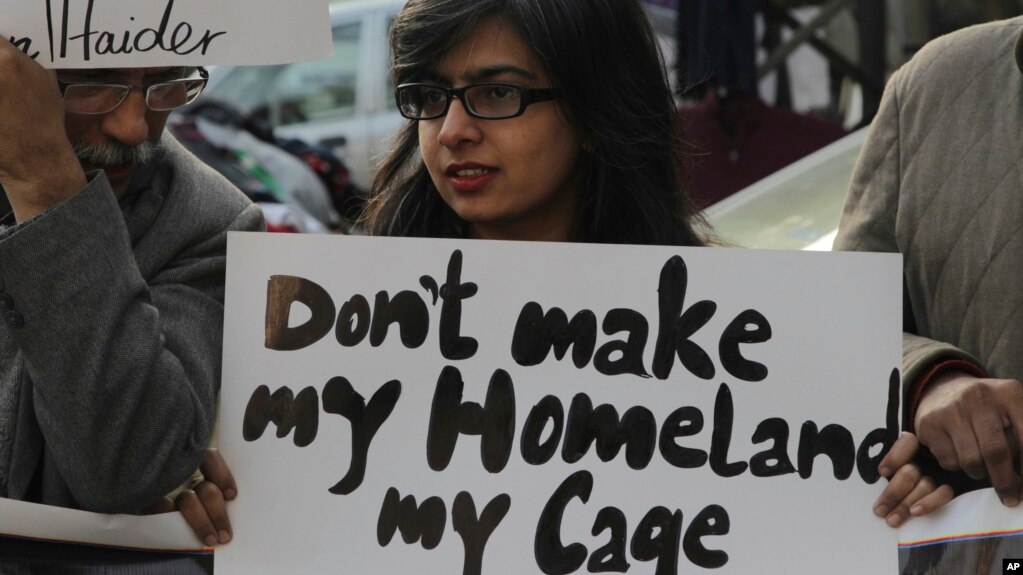 Haider
Don't make
my Homeland
my Cage
AP